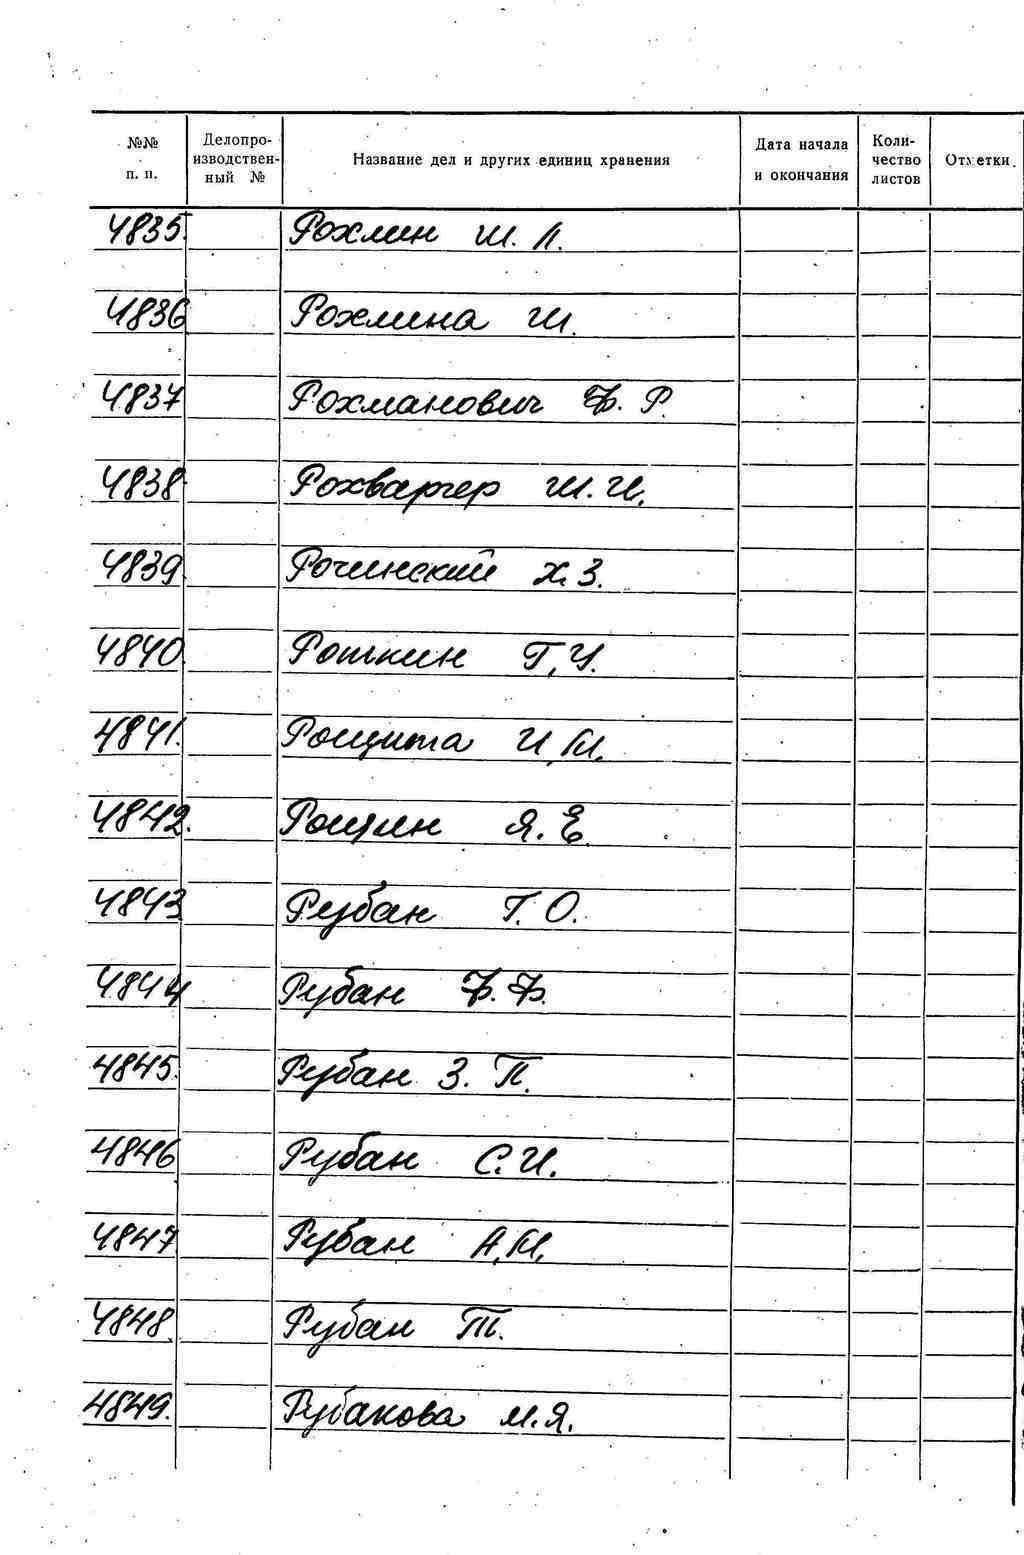 №№ п. п. Делопроизводственный № Название дел и других единиц хранения Дата начала и окончания Количество листов Отметки
4835. Рохлин Ш. Л.
4836 Рохлина Ш.
4837 Рохманович Ф. Р.
4838 Рохваргер Ш. И.
4839 Рочинский Х. З.
4840 Рошкин Г. И.
4841. Рощита И. М.
4842. Рощин Я. Е.
4843 Рубан Г. О.
4844 Рубан Ф. Ф.
4845. Рубан З. П.
4846 Рубан С. И.
4847 Рубан А. М.
4848. Рубан Т.
4849. Рубакова М. Я.